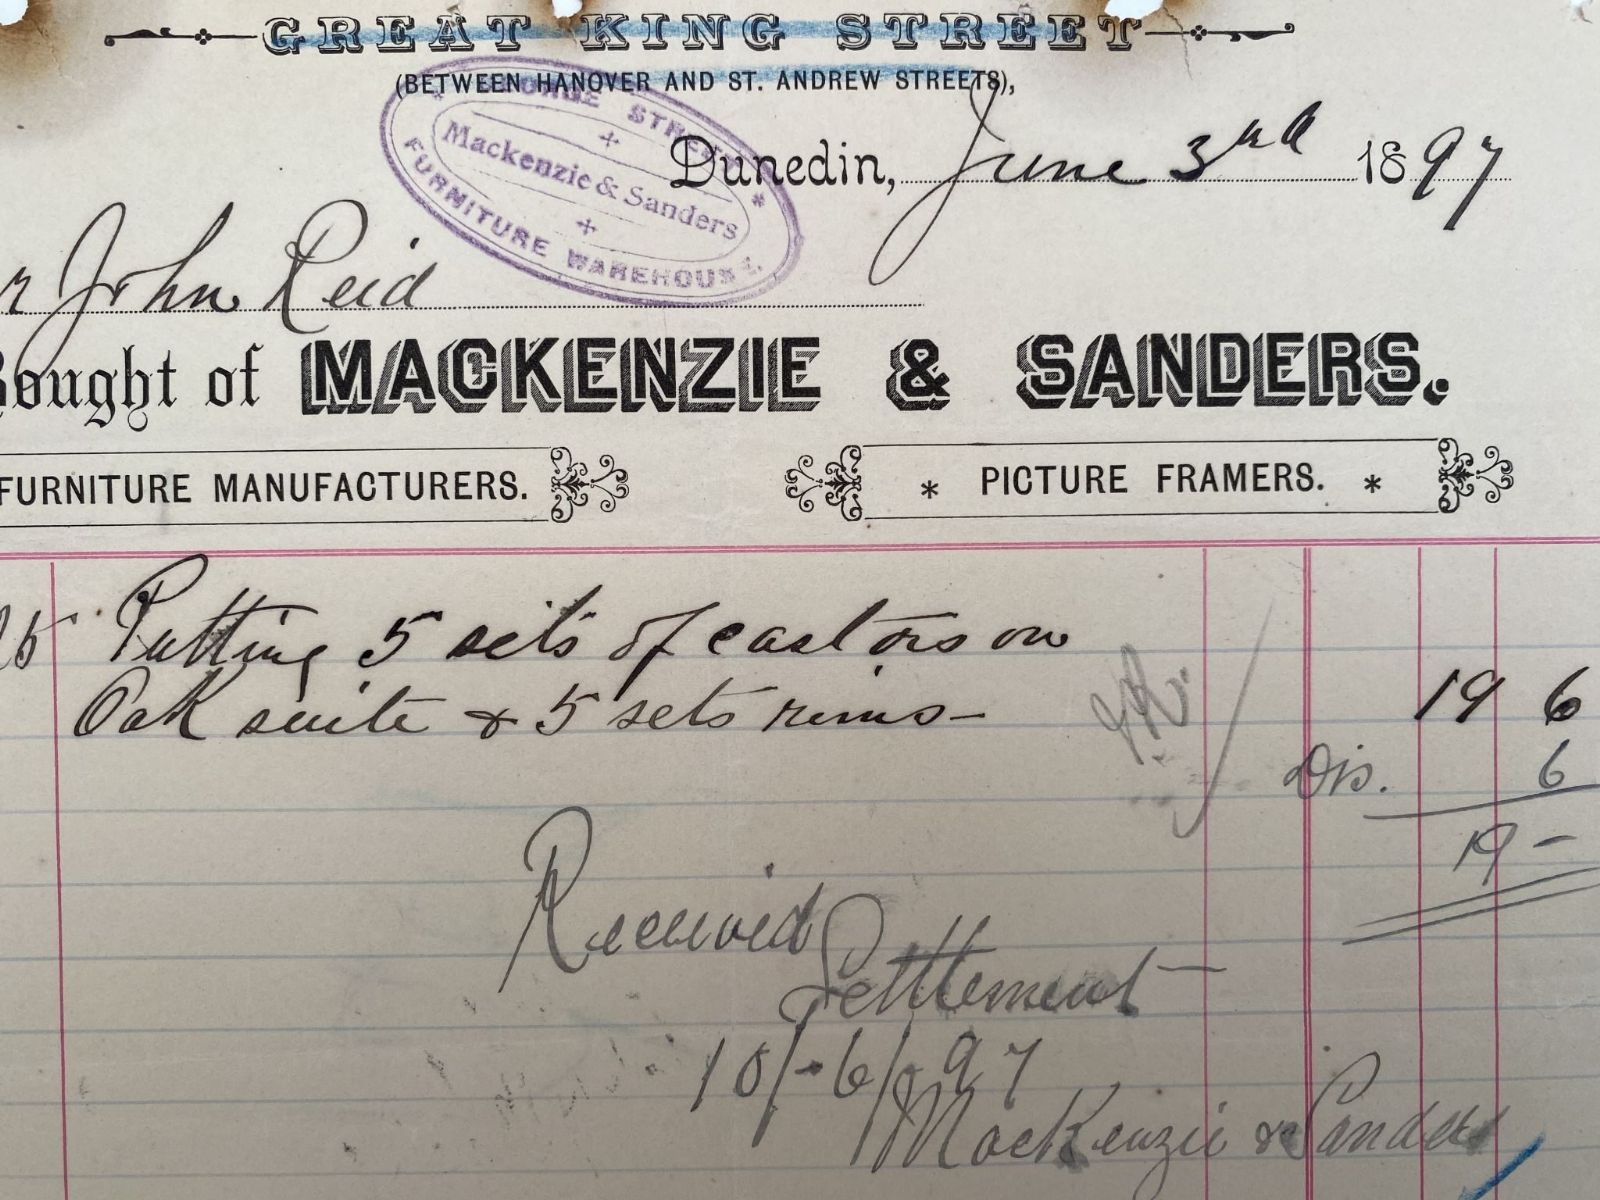 GREAT KING STREET
(BETWEEN HANOVER AND ST. ANDREW STREETS),
STREET
Mackenzie & Sanders
FURNITURE WAREHOUSE
Dunedin, June 3rd 1897
r John Reid
Bought of MACKENZIE & SANDERS.
FURNITURE MANUFACTURERS. * PICTURE FRAMERS. *
Putting 5 sets of castors on
Oak suite & 5 sets rims – 19 6
Dis. 6
19 –
Received
Settlement
10/-6/-97
MacKenzie & Sanders